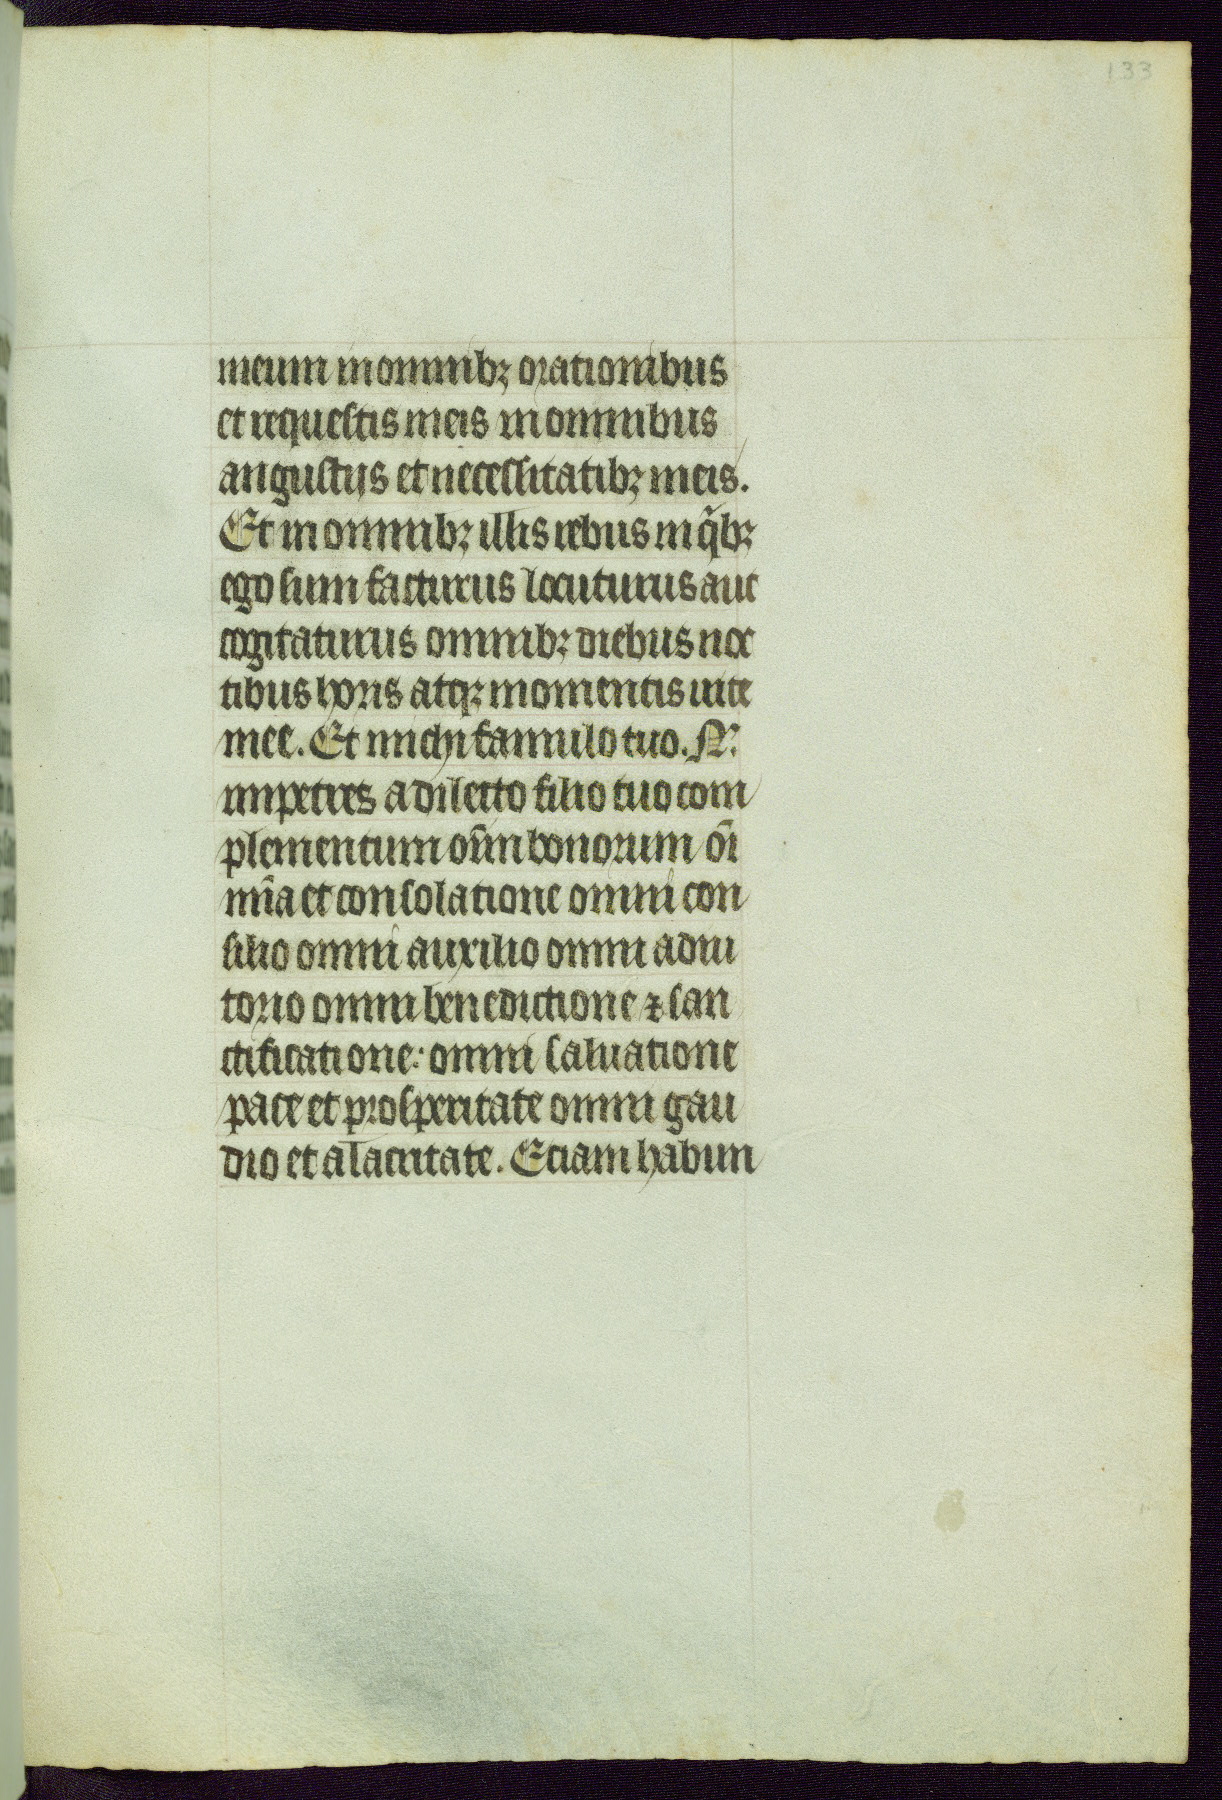 133
meum in omnibꝫ orationibus
et requestis meis in omnibus
angustijs et necessitatibꝫ meis.
Et in omnibꝫ illis rebus in q̃bꝫ
ego sum facturus locuturus aut
cogitaturus omnibꝫ diebus noc
tibus horis atqꝫ momentis uite
mee. Et michi famulo tuo. N.
impetres a dilecto filio tuo com
plementum om̄n bonorum om̄i
mīa et consolatione omni con
silio omni auxilio omni adiu
torio omni benedictione ⁊ san
ctificatione: omni saluatione
pace et prosperitate omni gau
dio et alacritate. Etiam habun